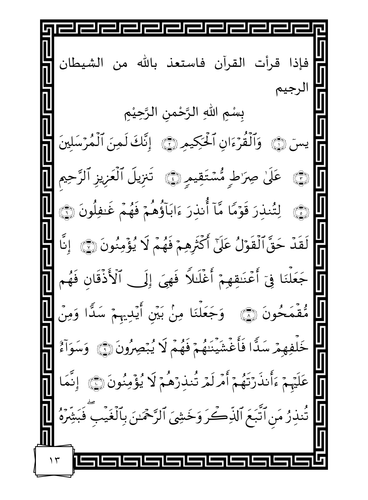 فإذا قرأت القرآن فاستعذ بالله من الشيطان
الرجيم
بِسْمِ اللهِ الرَّحْمنِ الرَّحِيْمِ
يسٓ ۝١ وَٱلْقُرْءَانِ ٱلْحَكِيمِ ۝٢ إِنَّكَ لَمِنَ ٱلْمُرْسَلِينَ
۝٣ عَلَىٰ صِرَٰطٍ مُّسْتَقِيمٍ ۝٤ تَنزِيلَ ٱلْعَزِيزِ ٱلرَّحِيمِ
۝٥ لِتُنذِرَ قَوْمًا مَّآ أُنذِرَ ءَابَآؤُهُمْ فَهُمْ غَٰفِلُونَ ۝٦
لَقَدْ حَقَّ ٱلْقَوْلُ عَلَىٰٓ أَكْثَرِهِمْ فَهُمْ لَا يُؤْمِنُونَ ۝٧ إِنَّا
جَعَلْنَا فِىٓ أَعْنَٰقِهِمْ أَغْلَٰلًا فَهِىَ إِلَى ٱلْأَذْقَانِ فَهُم
مُّقْمَحُونَ ۝٨ وَجَعَلْنَا مِنۢ بَيْنِ أَيْدِيهِمْ سَدًّا وَمِنْ
خَلْفِهِمْ سَدًّا فَأَغْشَيْنَٰهُمْ فَهُمْ لَا يُبْصِرُونَ ۝٩ وَسَوَآءٌ
عَلَيْهِمْ ءَأَنذَرْتَهُمْ أَمْ لَمْ تُنذِرْهُمْ لَا يُؤْمِنُونَ ۝١٠ إِنَّمَا
تُنذِرُ مَنِ ٱتَّبَعَ ٱلذِّكْرَ وَخَشِىَ ٱلرَّحْمَٰنَ بِٱلْغَيْبِ ۖ فَبَشِّرْهُ
١٣